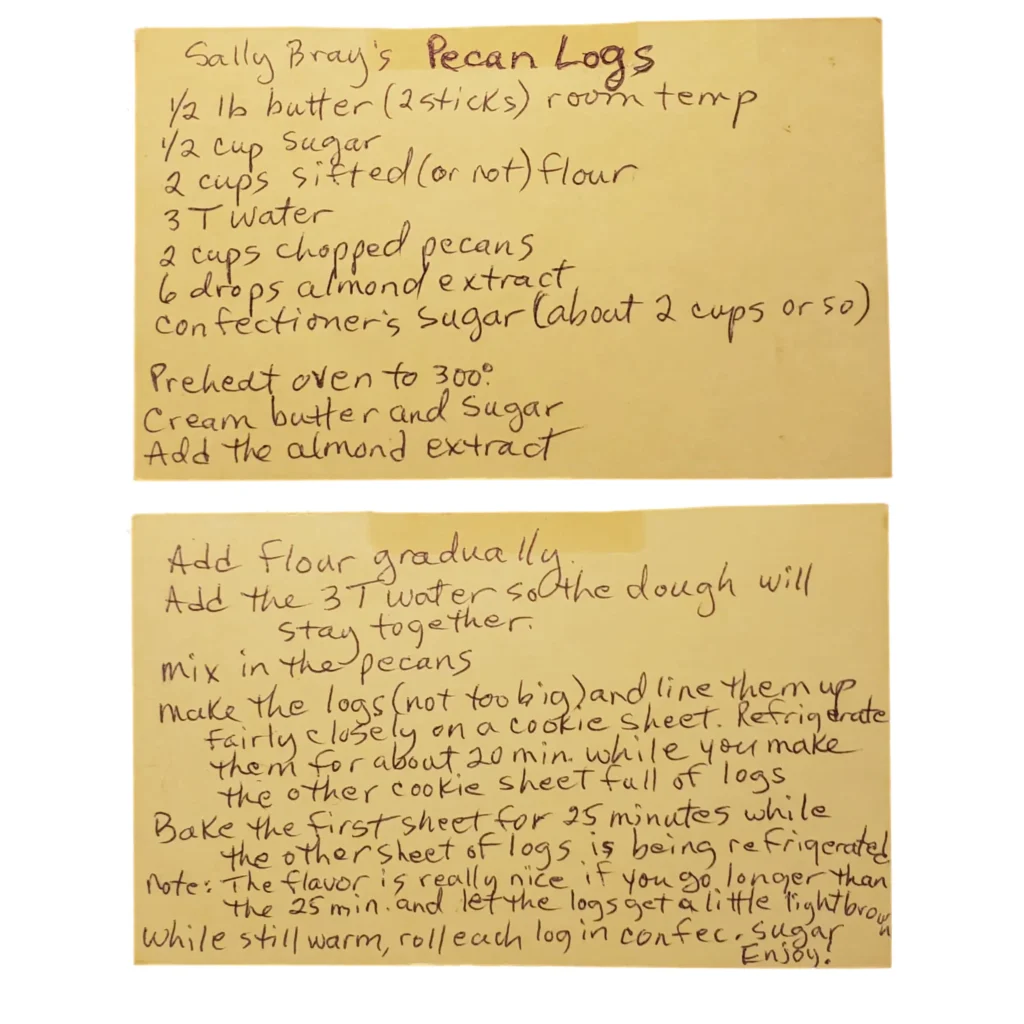 Sally Bray's Pecan Logs
1/2 lb butter (2 sticks) room temp
1/2 cup sugar
2 cups sifted (or not) flour
3 T water
2 cups chopped pecans
6 drops almond extract
confectioner's sugar (about 2 cups or so)
Preheat oven to 300°.
Cream butter and sugar
Add the almond extract
Add flour gradually.
Add the 3 T water so the dough will
stay together.
mix in the pecans
make the logs (not too big) and line them up
fairly closely on a cookie sheet. Refrigerate
them for about 20 min. while you make
the other cookie sheet full of logs
Bake the first sheet for 25 minutes while
the other sheet of logs is being refrigerated
Note: The flavor is really nice if you go longer than
the 25 min. and let the logs get a little light brown
While still warm, roll each log in confec. sugar
Enjoy!